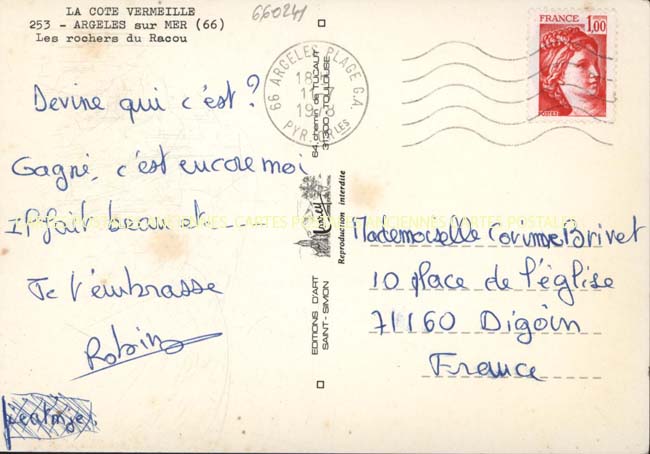 LA COTE VERMEILLE
253 - ARGELES sur MER (66)
Les rochers du Racou
660241
Devine qui c'est ?
Gagné, c'est encore moi
Il fait beau et ---
Je t'embrasse
Robin
EDITIONS D'ART
SAINT-SIMON
64, chemin de TUCAUT
31300 - TOULOUSE
Reproduction interdite
66 ARGELES PLAGE G.A.
18
11
19 8
PYR.
FRANCE 1,00
POSTES
Mademoiselle Corinne Brivet
10 place de l'église
71160 Digoin
France
CARTES POSTALES ANCIENNES CARTES POSTALES